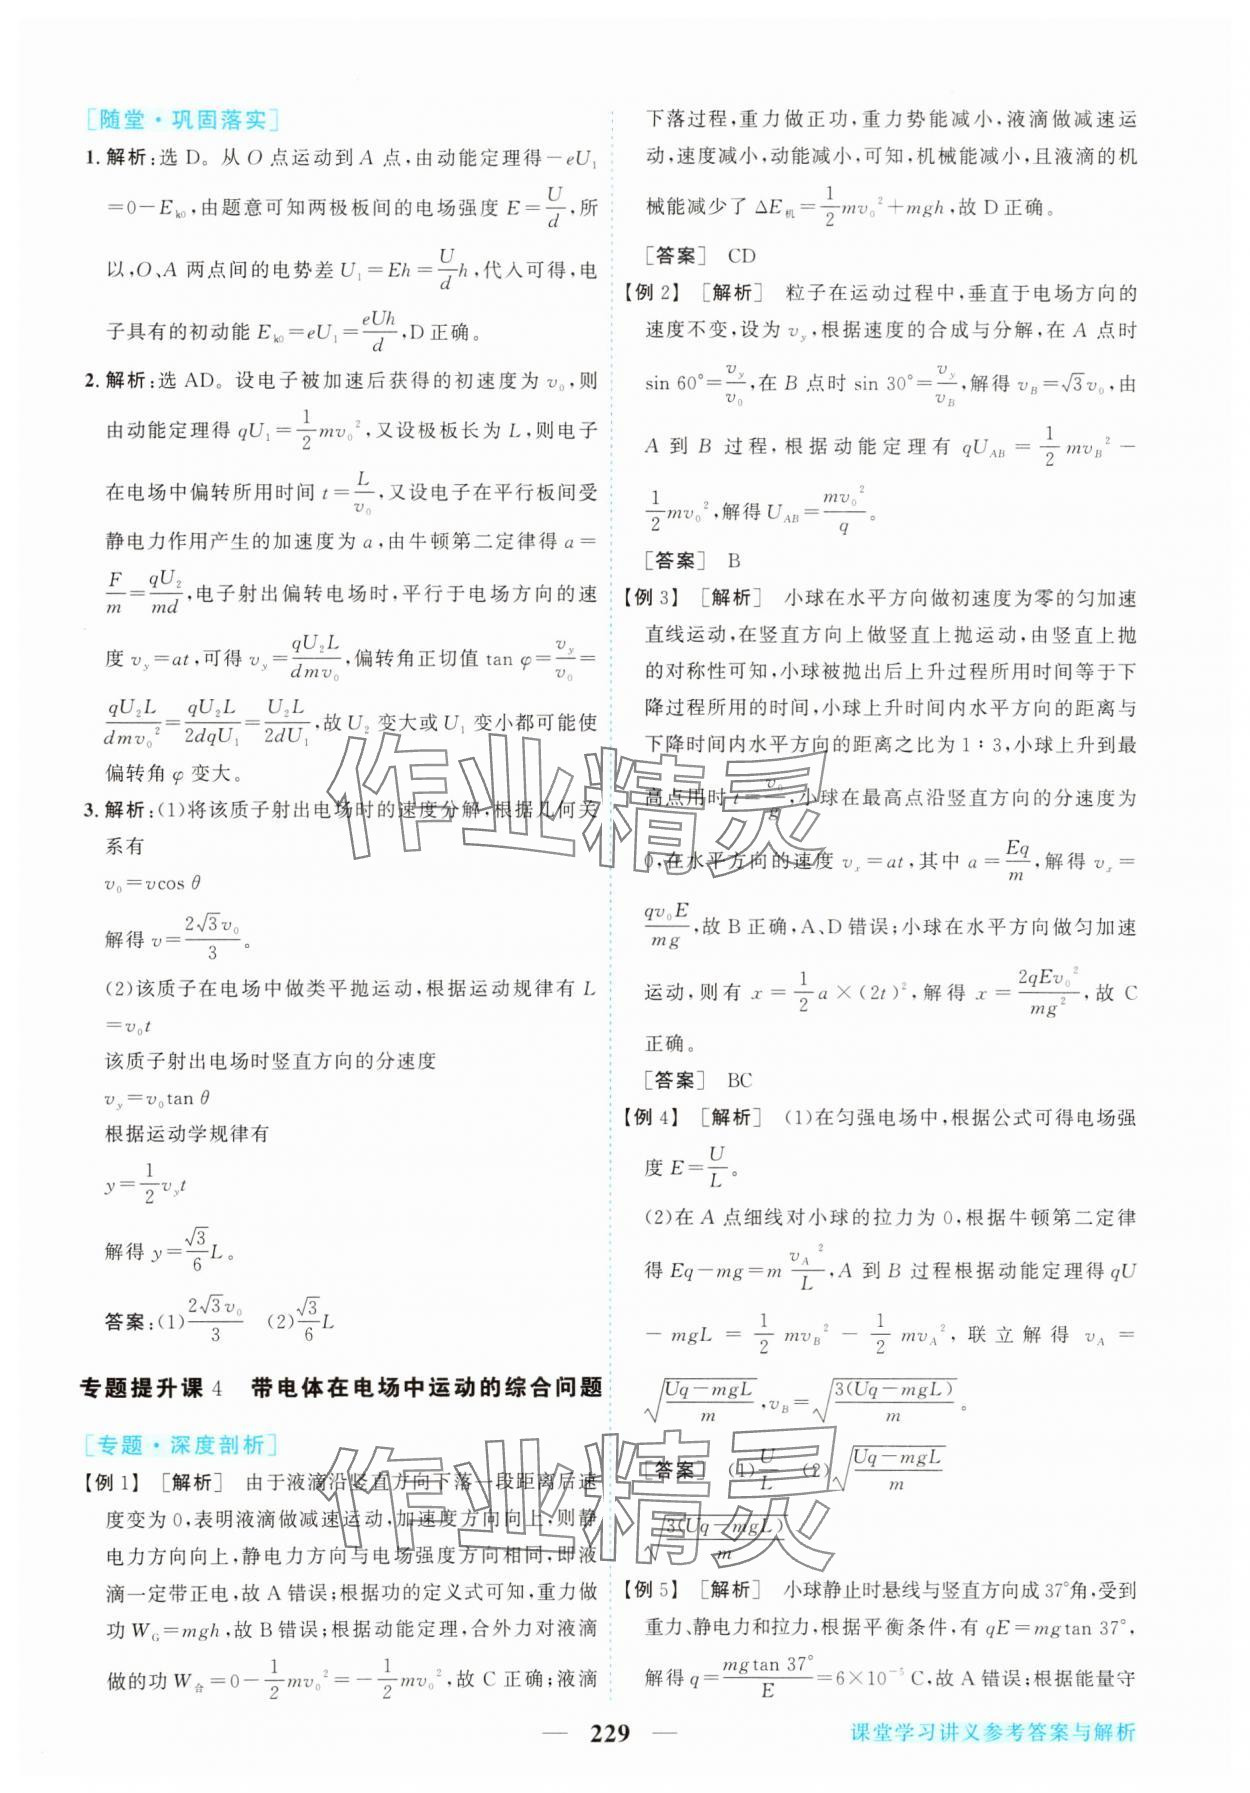 [随堂·巩固落实]
1. 解析:选 D。从 O 点运动到 A 点,由动能定理得-eU₁
=0-Eₖ₀,由题意可知两极板间的电场强度 E=U/d,所
以,O、A 两点间的电势差 U₁=Eh=(U/d)h,代入可得,电
子具有的初动能 Eₖ₀=eU₁=eUh/d,D 正确。
2. 解析:选 AD。设电子被加速后获得的初速度为 v₀,则
由动能定理得 qU₁=(1/2)mv₀²,又设极板长为 L,则电子
在电场中偏转所用时间 t=L/v₀,又设电子在平行板间受
静电力作用产生的加速度为 a,由牛顿第二定律得 a=
F/m=qU₂/md,电子射出偏转电场时,平行于电场方向的速
度 v_y=at,可得 v_y=qU₂L/dmv₀,偏转角正切值 tan φ=v_y/v₀=
qU₂L/dmv₀²=qU₂L/2dqU₁=U₂L/2dU₁,故 U₂ 变大或 U₁ 变小都可能使
偏转角 φ 变大。
3. 解析:(1)将该质子射出电场时的速度分解,根据几何关
系有
v₀=vcos θ
解得 v=2√3v₀/3。
(2)该质子在电场中做类平抛运动,根据运动规律有 L
=v₀t
该质子射出电场时竖直方向的分速度
v_y=v₀tan θ
根据运动学规律有
y=(1/2)v_yt
解得 y=(√3/6)L。
答案:(1)2√3v₀/3 (2)(√3/6)L
专题提升课 4 带电体在电场中运动的综合问题
[专题·深度剖析]
【例 1】 [解析] 由于液滴沿竖直方向下落一段距离后速
度变为 0,表明液滴做减速运动,加速度方向向上,则静
电力方向向上,静电力方向与电场强度方向相同,即液
滴一定带正电,故 A 错误;根据功的定义式可知,重力做
功 W_G=mgh,故 B 错误;根据动能定理,合外力对液滴
做的功 W合=0-(1/2)mv₀²=-(1/2)mv₀²,故 C 正确;液滴
下落过程,重力做正功,重力势能减小,液滴做减速运
动,速度减小,动能减小,可知,机械能减小,且液滴的机
械能减少了 ΔE机=(1/2)mv₀²+mgh,故 D 正确。
[答案] CD
【例 2】 [解析] 粒子在运动过程中,垂直于电场方向的
速度不变,设为 v_y,根据速度的合成与分解,在 A 点时
sin 60°=v_y/v₀,在 B 点时 sin 30°=v_y/v_B,解得 v_B=√3v₀,由
A 到 B 过程,根据动能定理有 qU_AB=(1/2)mv_B²-
(1/2)mv₀²,解得 U_AB=mv₀²/q。
[答案] B
【例 3】 [解析] 小球在水平方向做初速度为零的匀加速
直线运动,在竖直方向上做竖直上抛运动,由竖直上抛
的对称性可知,小球被抛出后上升过程所用时间等于下
降过程所用的时间,小球上升时间内水平方向的距离与
下降时间内水平方向的距离之比为 1∶3,小球上升到最
高点用时 t=v₀/g,小球在最高点沿竖直方向的分速度为
0,在水平方向的速度 vₓ=at,其中 a=Eq/m,解得 vₓ=
qv₀E/mg,故 B 正确,A、D 错误;小球在水平方向做匀加速
运动,则有 x=(1/2)a×(2t)²,解得 x=2qEv₀²/mg²,故 C
正确。
[答案] BC
【例 4】 [解析] (1)在匀强电场中,根据公式可得电场强
度 E=U/L。
(2)在 A 点细线对小球的拉力为 0,根据牛顿第二定律
得 Eq-mg=m v_A²/L,A 到 B 过程根据动能定理得 qU
-mgL=(1/2)mv_B²-(1/2)mv_A²,联立解得 v_A=
√((Uq-mgL)/m),v_B=√(3(Uq-mgL)/m)。
[答案] (1)U/L (2)√((Uq-mgL)/m)
√(3(Uq-mgL)/m)
【例 5】 [解析] 小球静止时悬线与竖直方向成 37°角,受到
重力、静电力和拉力,根据平衡条件,有 qE=mgtan 37°,
解得 q=mgtan 37°/E=6×10⁻⁵ C,故 A 错误;根据能量守
作业精灵
作业精灵
— 229 —
课堂学习讲义参考答案与解析